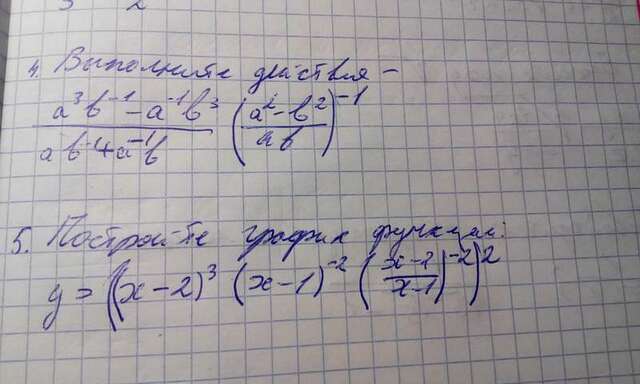 3 2
4. Выполните действия –
(a³b⁻¹ - a⁻¹b³)/(ab⁻¹+a⁻¹b) ((a²-b²)/(ab))⁻¹
5. Постройте график функции:
y = ((x-2)³ (x-1)⁻² ((x-2)/(x-1))⁻²)²